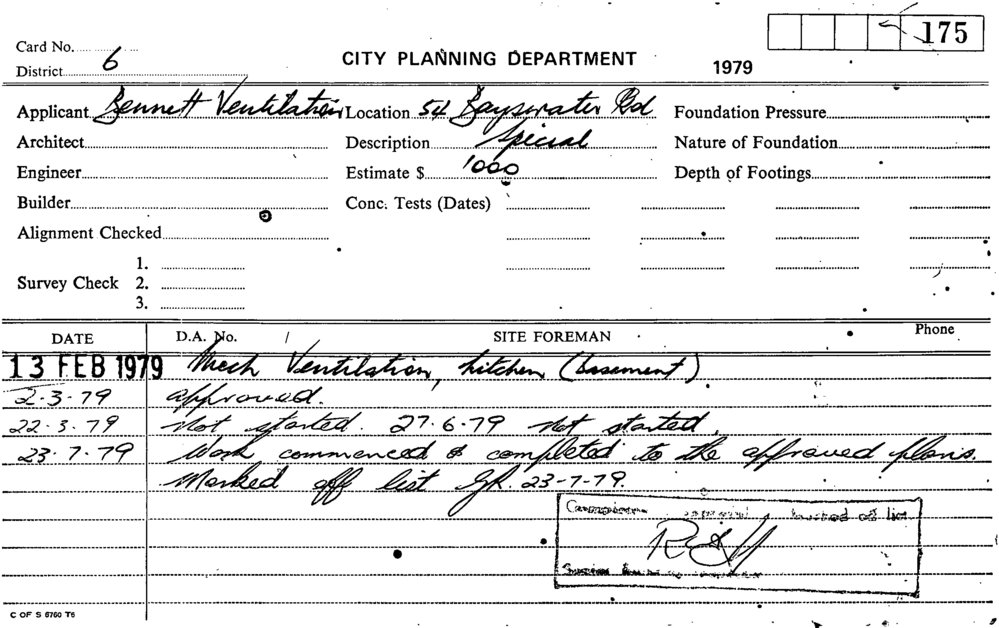 175
Card No.
CITY PLANNING DEPARTMENT
1979
District 6
Applicant Bennett Ventilation Location 54 Bayswater Rd Foundation Pressure
Architect Description Special Nature of Foundation
Engineer Estimate $ 1000 Depth of Footings
Builder Conc. Tests (Dates)
Alignment Checked
1.
Survey Check 2.
3.
DATE D.A. No. / SITE FOREMAN Phone
13 FEB 1979 Mech Ventilation, kitchen (basement)
2-3-79 approved.
22.3.79 Not started. 27.6.79 Not started.
23.7.79 Work commenced & completed to the approved plans.
Marked off list GR. 23-7-79.
marked off list
C OF S 6760 T6